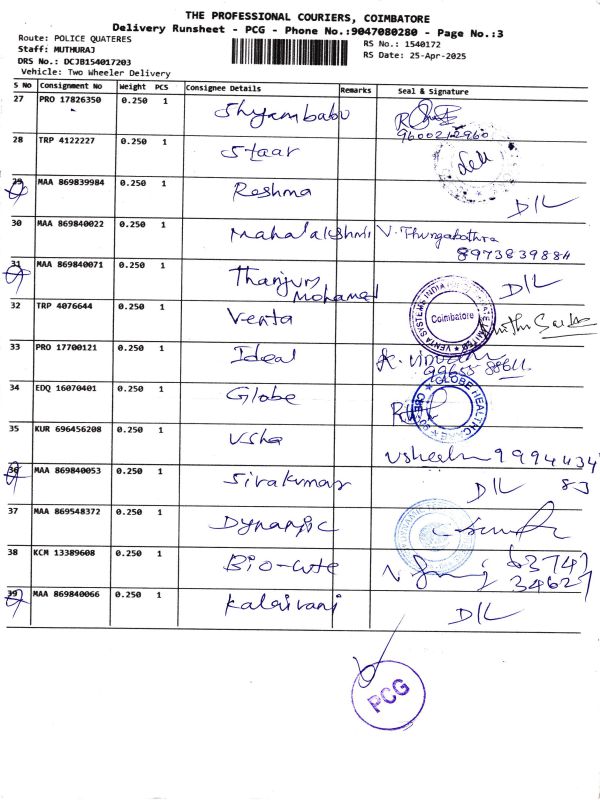 THE PROFESSIONAL COURIERS, COIMBATORE
Delivery Runsheet - PCG - Phone No.:9047080280 - Page No.:3
Route: POLICE QUATERES
RS No.: 1540172
Staff: MUTHURAJ
RS Date: 25-Apr-2025
DRS No.: DCJB154017203
Vehicle: Two Wheeler Delivery
S No Consignment No Weight PCS Consignee Details Remarks Seal & Signature
27 PRO 17826350 0.250 1 Shyambabu
9600212960
28 TRP 4122227 0.250 1 Staar
29 MAA 869839984 0.250 1 Reshma D/L
30 MAA 869840022 0.250 1 Mahalakshmi V. Thungabathra
8973839884
31 MAA 869840071 0.250 1 Thanjum Mohamed D/L
32 TRP 4076644 0.250 1 Venta
VENTA SYSTEMS INDIA PRIVATE LIMITED
Coimbatore
33 PRO 17700121 0.250 1 Ideal
34 EDQ 16070401 0.250 1 Globe
GLOBE HEALTHCARE
35 KUR 696456208 0.250 1 Usha
36 MAA 869840053 0.250 1 Sivakumar D/L
37 MAA 869548372 0.250 1 Dynamic
38 KCM 13389608 0.250 1 Bio-cute
63747
34627
39 MAA 869840066 0.250 1 Kalaivani D/L
PCG